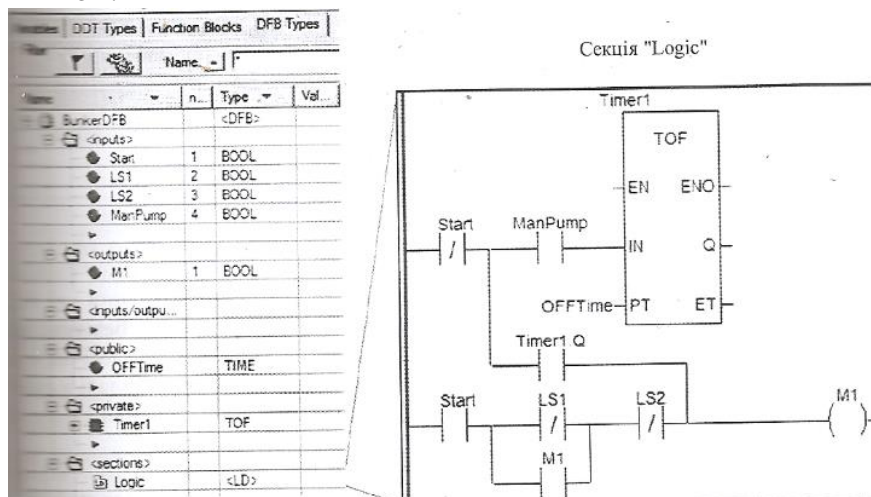 DDT Types Function Blocks DFB Types
Name
n... Type Val...
BunkerDFB <DFB>
<inputs>
Start 1 BOOL
LS1 2 BOOL
LS2 3 BOOL
ManPump 4 BOOL
<outputs>
M1 1 BOOL
<inputs/outpu...
<public>
OFFTime TIME
<private>
Timer1 TOF
<sections>
Logic <LD>
Секція "Logic"
Timer1
TOF
EN ENO
Start ManPump
IN Q
OFFTime PT ET
Timer1.Q
Start LS1 LS2 M1
M1